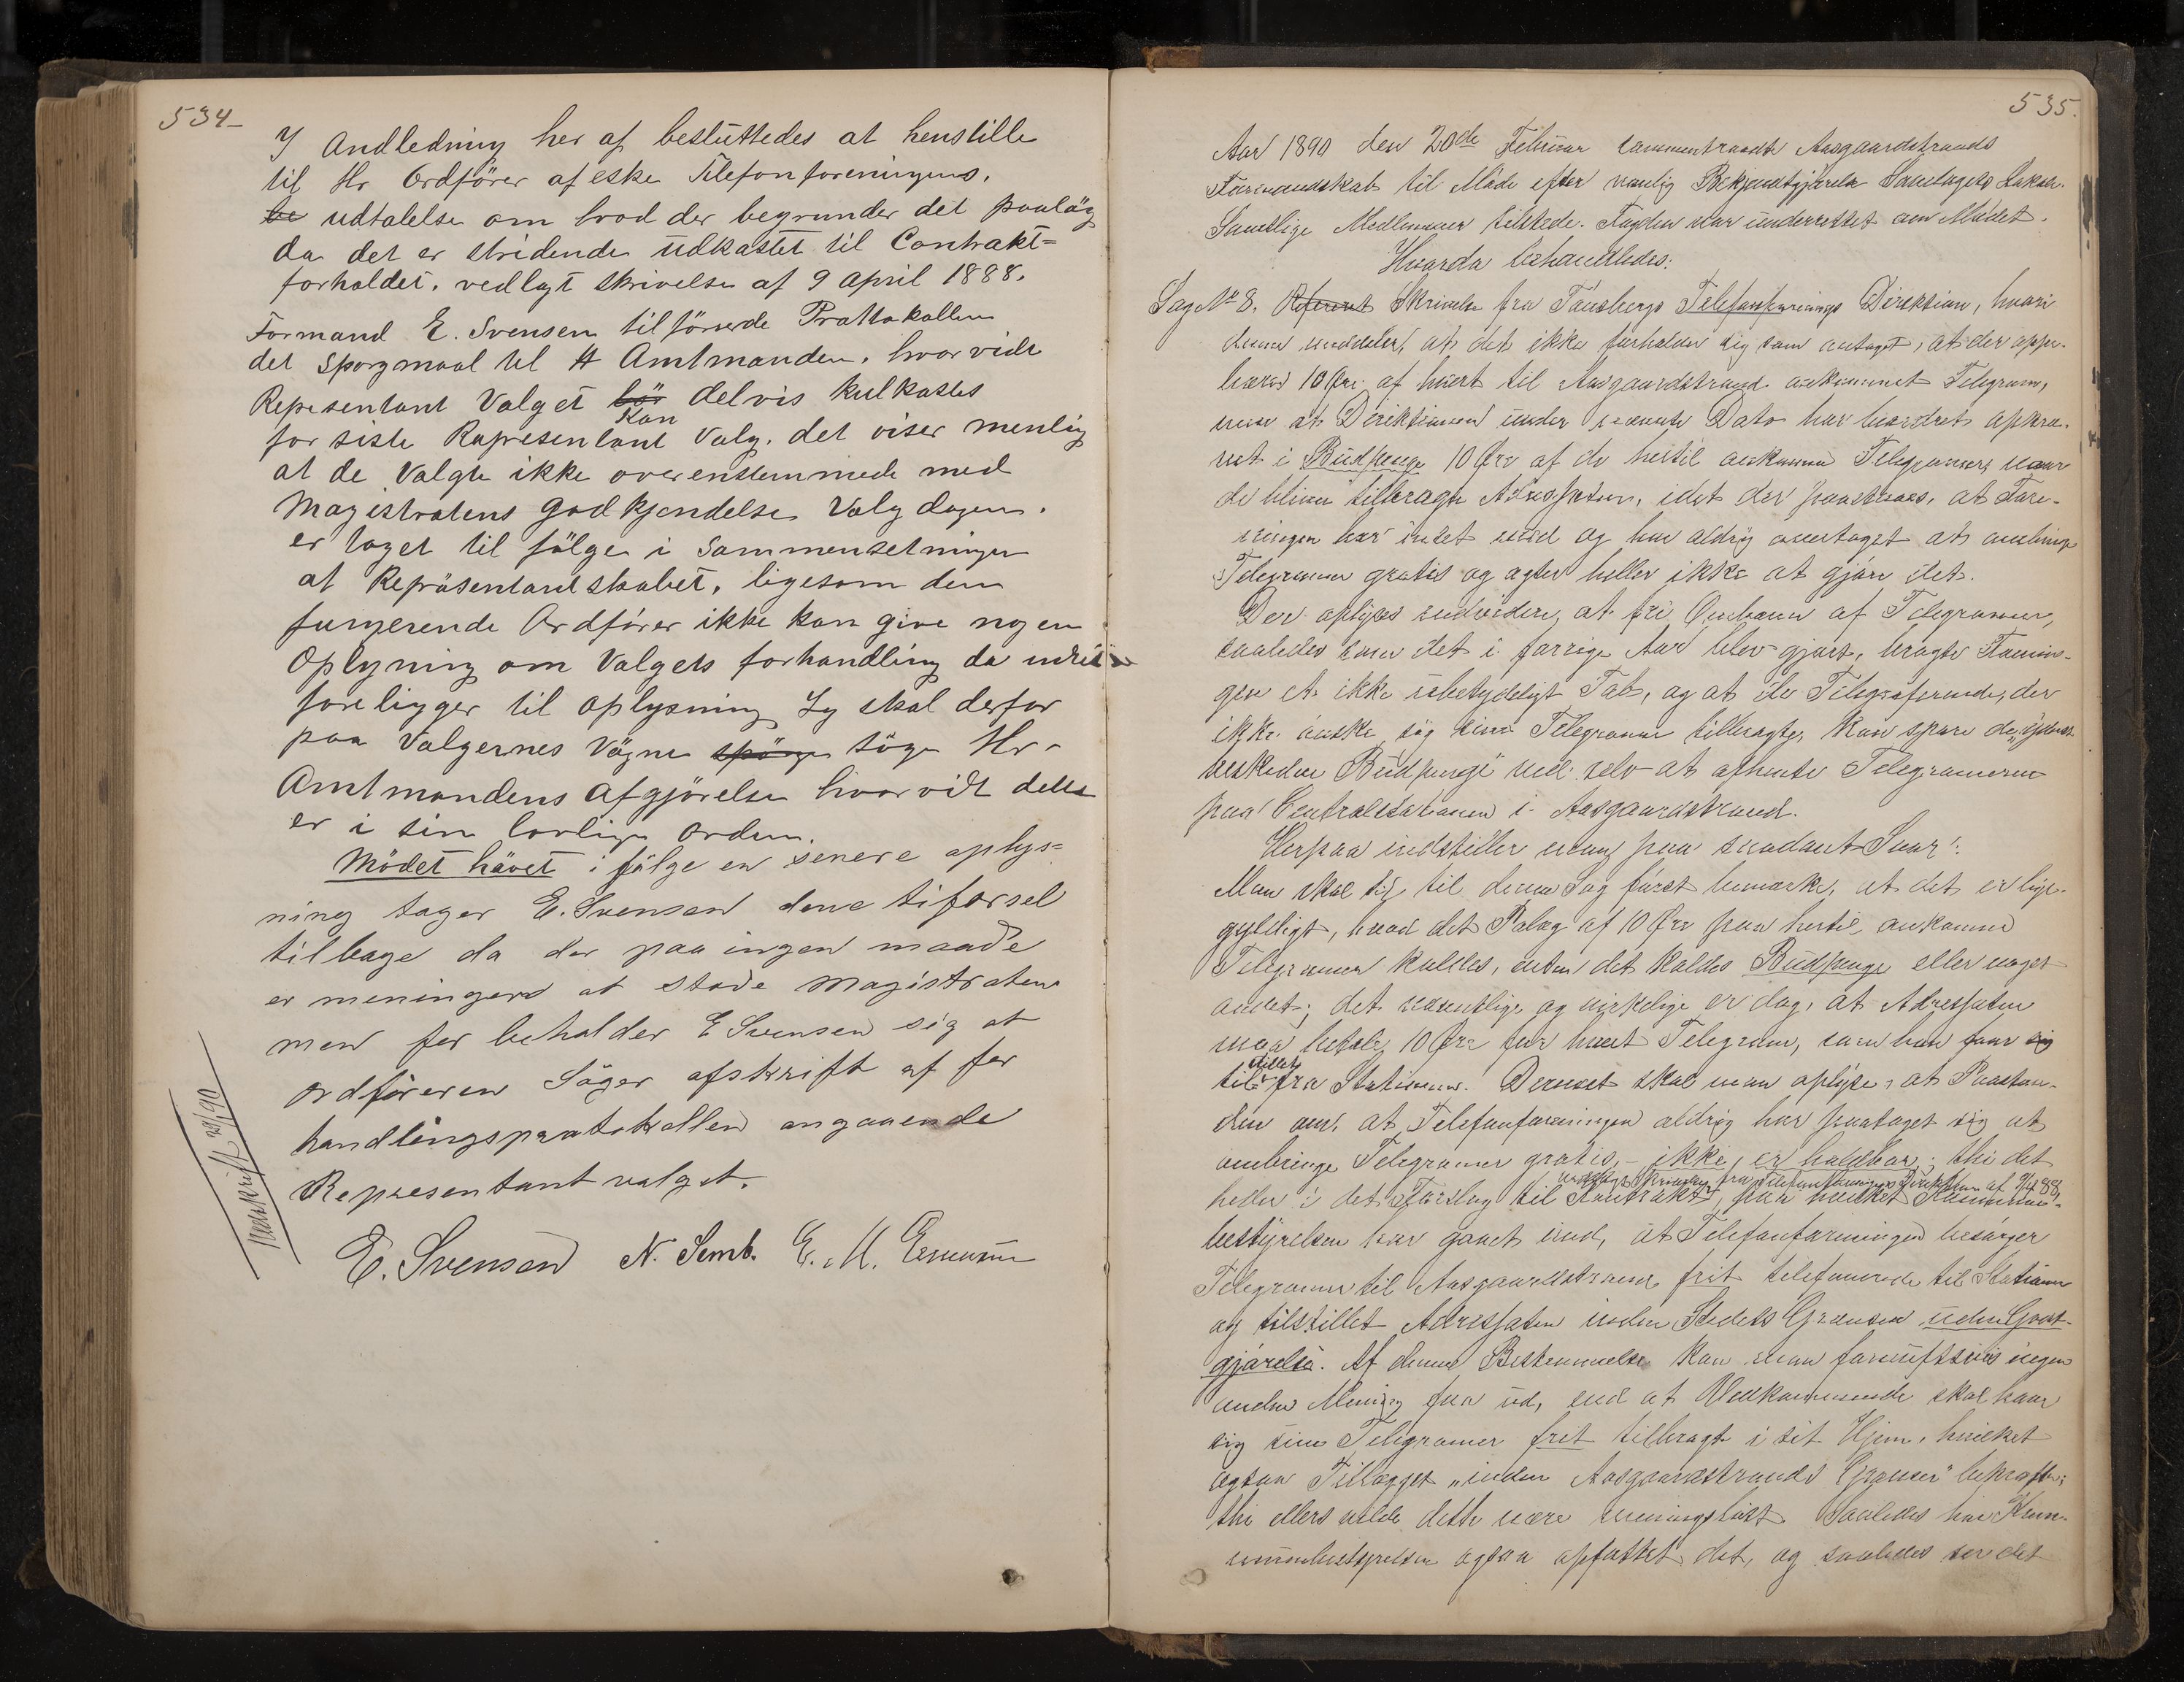 534-
I Andledning her af besluttedes at henstille
til Hr Ordfører af eske Telefonforeningens.
be udtalelse om hvad der begrunder det paalæg
da det er stridende udkastet til Contrakt=
forholdet. vedlagt skrivelse af 9 April 1888.
Formand E. Svensen tilførerde Prottokollen
det Sporgmaal til H Amtmanden. hvorvidt
Represenlant Valget bör Kan delvis kulkastes
for siste Rapresenlant Valg. det viser menlig
at de Valgte ikke overenstemmede med
Magistratens godkjendelse Valg dagen.
er taget til fölge i Sammensetningen
af Repräsentantskabet, ligesom den
fungerende Ordförer ikke kan give nogen
Oplysning om Valgets forhandling da intet
foreligger til oplysning Jeg skal derfor
paa Valgernes Vägne spörge söge Hr-
Amtmandens Afgjörelse hvorvidt dette
er i sin lovlige orden.
Mödet hävet i fölge en senere oplys=
ning tager E. Svensen dene tiforsel
tilbage da der paa ingen maade
er meningen at stöde Magistraten
men for beholder E Svensen sig at
Ordföreren Söger afskrift af for
handlingsprotokollen angaaende
Representantvalget.
E. Svensen N. Semb. E. M.
Udskrift 29/1 90
535.
Aar 1890 den 20de Februar sammentraadte Aasgaardstrands
Formandskab til Møde efter vanlig Bekjendtgjørelse
Samtlige Medlemmer tilstede. Fogden var underrettet om Mødet.
Hvorda behandledes:
Sag No 8. Referent Skrivelse fra Tønsbergs Telefonforenings Direktion, hvori
denne meddeler, at det ikke forholder sig som antaget, at der oppe-
bæres 10 Øre af hvert til Aasgaardstrand ankommet Telegram,
men at Direktionen under Dato har
i Budpenge 10 Øre af de hertil ankomne Telegramer, naar
de bliver tilbragte Adressaten, idet der paastaaes, at Fore-
ningen har intet med og har aldrig overtaget at ombringe
Telegramer gratis og agter heller ikke at gjøre det.
Der oplyses endvidere, at fri Ombæren af Telegramer,
saaledes som det i forrige Aar blev gjort, bragte Forenin-
gen et ikke ubetydeligt Tab, og at de Telegraferende, der
ikke ønske sig sine Telegramer tilbragte, kan spare de „yderst
beskedne Budpenge" ved selv at afhente Telegrameren
paa Centralstationen i Aasgaardstrand.
Herpaa indstiller man paa saadant Svar:
Man skal til denne Sag først bemærke, at det er lige-
gyldigt, hvad det Palæg af 10 Øre paa hertil ankomne
Telegramer kaldes, enten det kaldes Budpenge eller noget
andet; det væsentlige og virkelige er dog, at Adressaten
maa betale 10 Øre for hvert Telegram, som han faar sig
tilstillet fra Stationen. Dernæst skal man oplyse, at Paastan-
den om, at Telefonforeningen aldrig har paataget sig at
ombringe Telegramer gratis, - ikke er holdbar; thi det
heder i det vedlagt Skrivelse fra Telefonforeningens Direktion af 9/4 88,
Forslag til Kontrakt, paa hvilket Kommune-
bestyrelsen har gaaet ind, at Telefonforeningen besørger
Telegramer til Aasgaardstrand frit telefonerede til Stationen
og tilstillet Adressaten inden Stedets Grænser uden Godt-
gjørelse. Af denne Bestemmelse kan man fornuftsvis ingen
anden Mening faa ud, end at Vedkommende skal have
sig sine Telegramer frit tilbragt i sit Hjem, hvilket
ogsaa Tillægget „inden Aasgaardstrands Grænser" bekræfter;
thi ellers vilde dette være meningsløst. Saaledes har Kom-
munebestyrelsen ogsaa opfattet det, og saaledes ser det